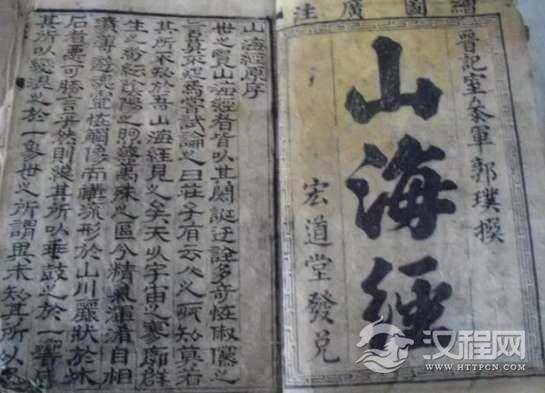 圖廣注
晉記室參軍郭璞撰
山海經
宏道堂發兌
山海經原序
世之覽山海經者皆以其閎誕迂誇多奇怪俶儻之
言莫不疑焉嘗試論之曰莊子有云人之所知莫若
其所不知於吾山海經見之矣夫以宇宙之寥廓群
生之紛紜陰陽之煦蒸萬殊之區分精氣渾淆自相
濆薄遊魂靈怪觸像而構流形於山川麗狀於木
石者惡可勝言乎然則總其所以乖鼓之於一響成
其所以變混之於一象世之所謂異未知其所以異
汉程网
WWW.HTTPCN.COM